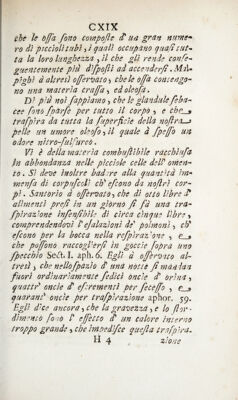 CXIX
che le ossa sono composte d' un gran nume-
ro di piccioli tubi, i quali occupano quasi tut-
ta la loro lunghezza, il che gli rende conse-
guentemente più disposti ad accendersi. Mal-
pighi à altresì osservato, che le ossa contengo-
no una materia crassa, ed oleosa.
Di più noi sappiamo, che le glandule seba-
cee sono sparse per tutto il corpo, e che
traspira da tutta la superficie della nostra
pelle un umore oleoso, il quale à spesso un
odore nitro-sulfureo.
Vi è della materia combustibile racchiusa
in abbondanza nelle picciole celle dell' omen-
to. Si deve inoltre badare alla quantità im-
mensa di corpuscoli ch' escono da nostri cor-
pi. Santorio à osservato, che di otto libre d'
alimenti presi in un giorno si fà una tra-
spirazione insensibile di circa cinque libre,
comprendendovi l' esalazioni de' polmoni, ch'
escono per la bocca nella respirazione, e
che possono raccogliersi in goccie sopra uno
specchio Sect. I. aph. 6. Egli à osservato al-
tresì, che nellospazio d' una notte si mandan
fuori ordinariamente sedici oncie d' orina,
quattr' oncie d' escrementi per secesso, e
quarant' oncie per traspirazione aphor. 59.
Egli dice ancora, che la gravezza, e lo stor-
dimento sono l' effetto d' un calore interno
troppo grande, che impedisce questa traspira-
H 4 zione